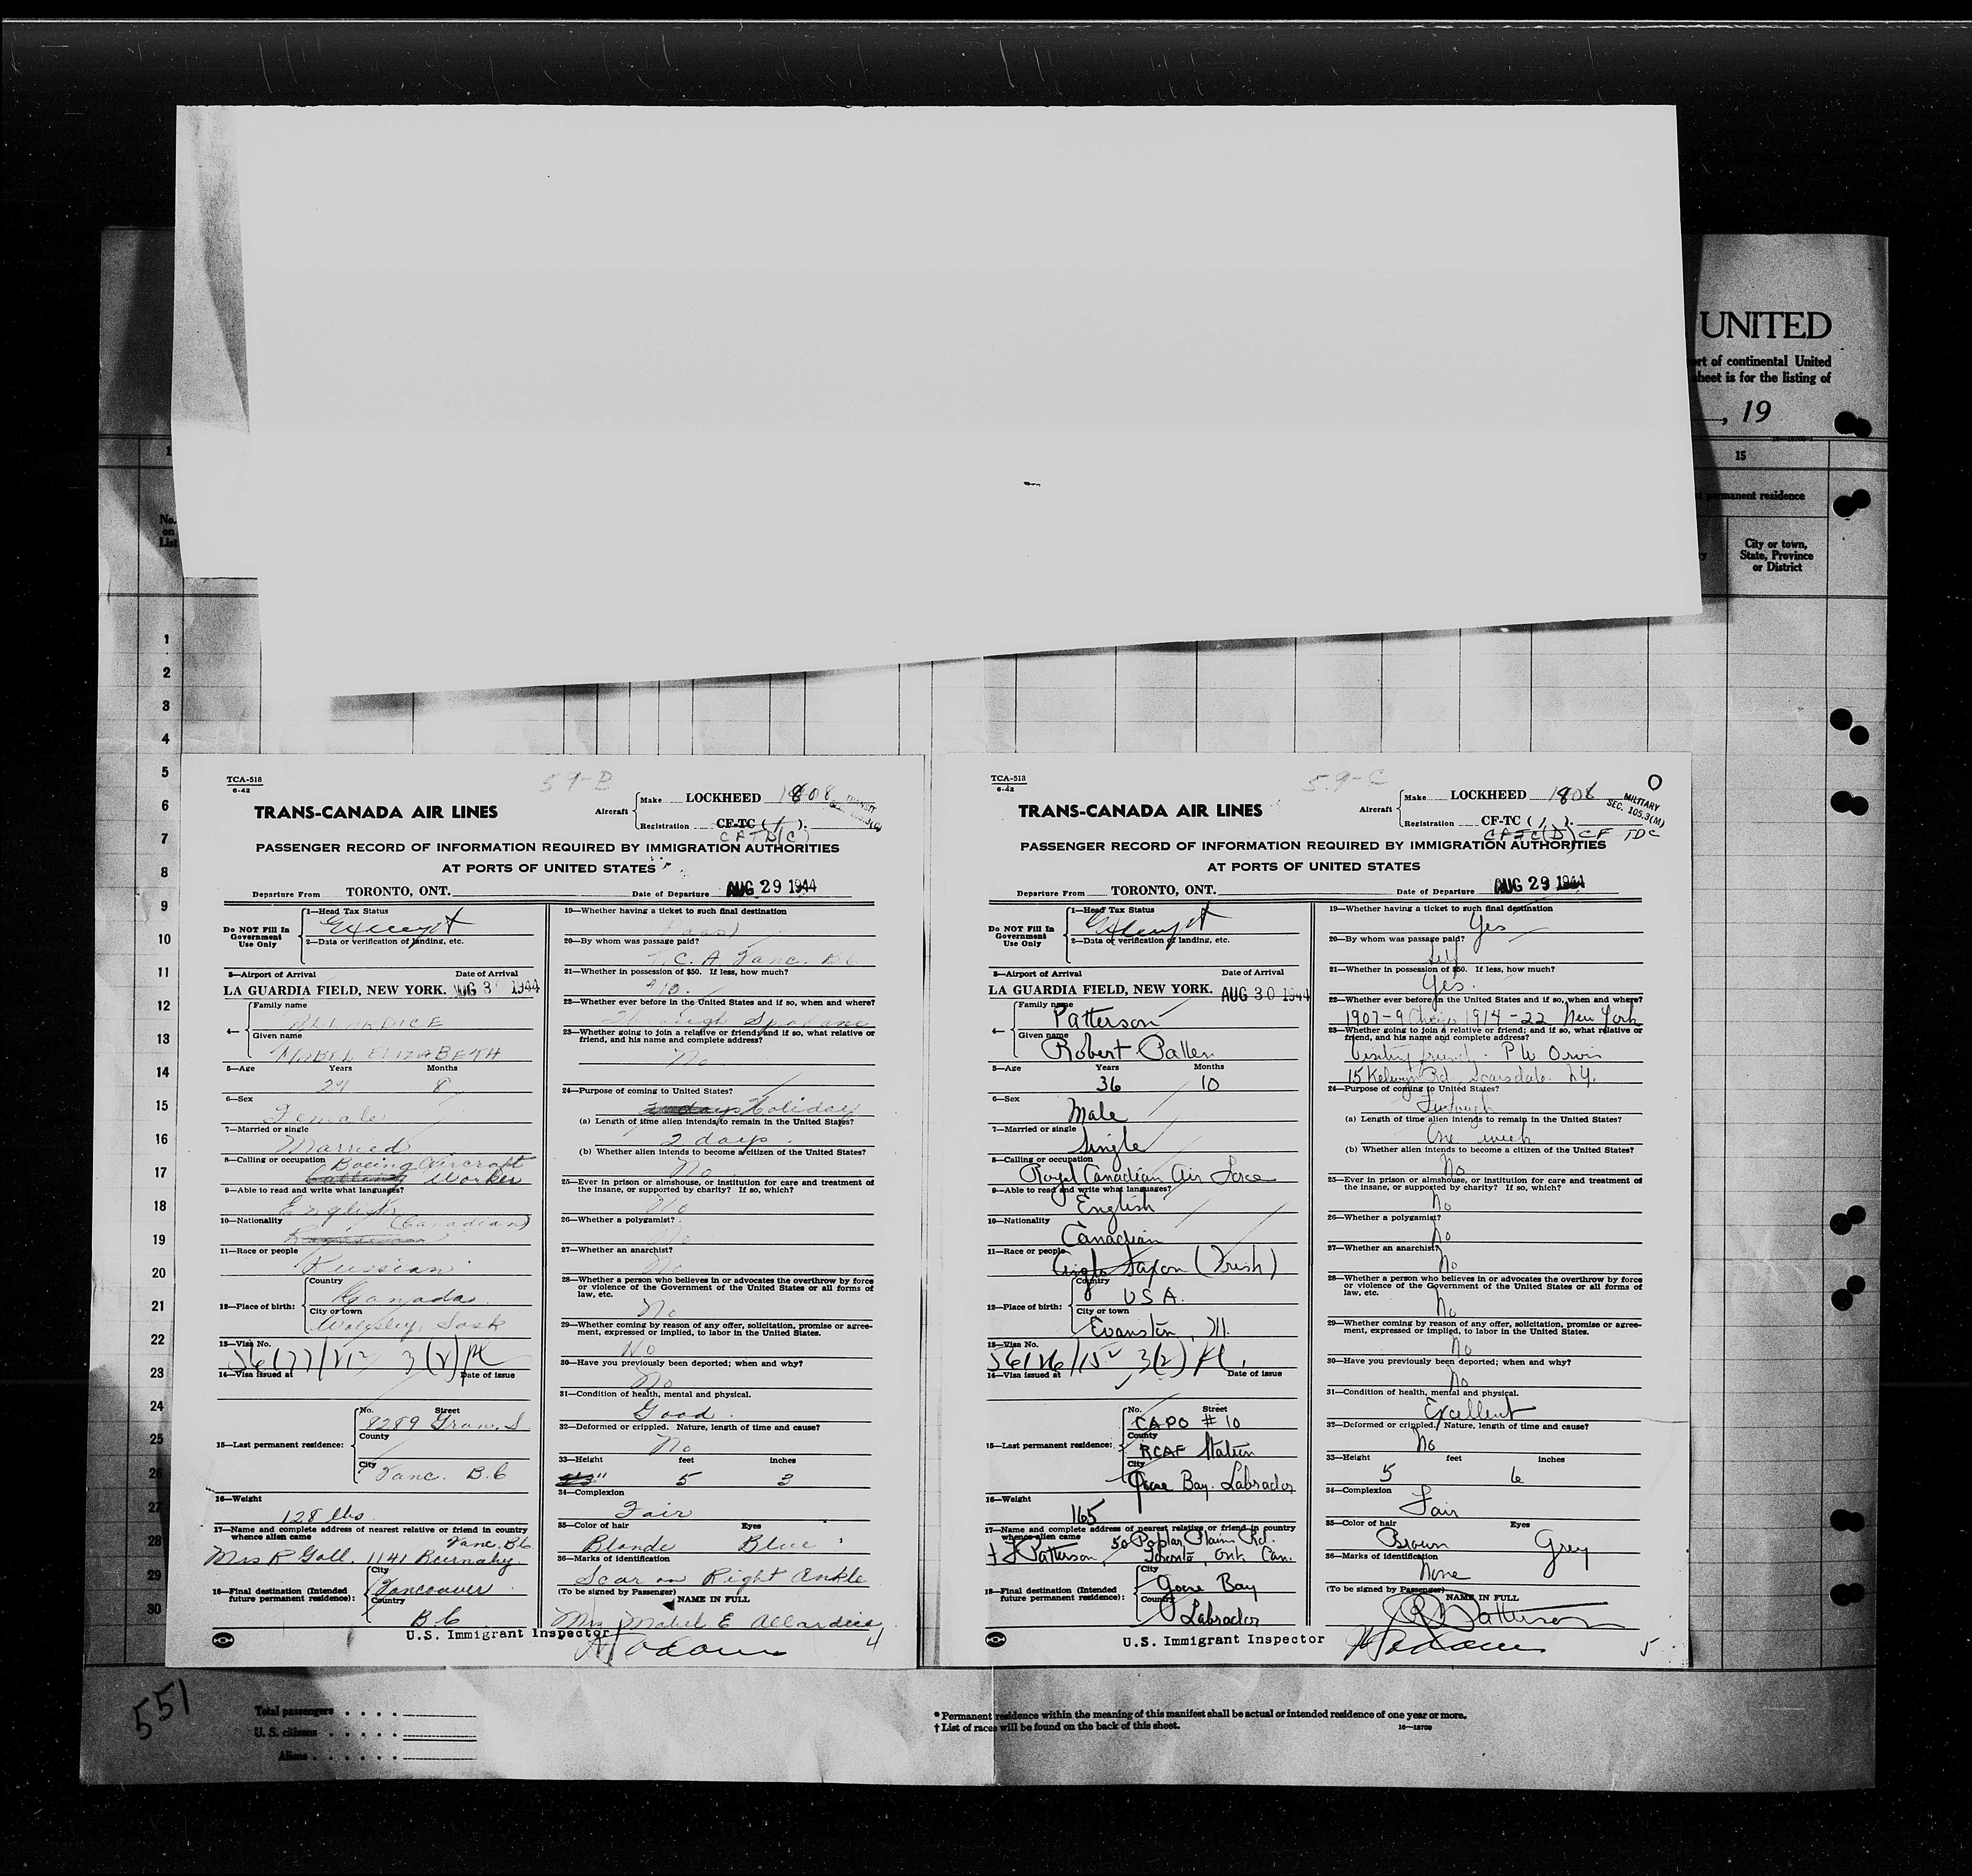 UNITED
ort of continental United
sheet is for the listing of
, 19
15
permanent residence
No.
on
List
City or town,
State, Province
or District
1
2
3
4
5
6
7
8
9
10
11
12
13
14
15
16
17
18
19
20
21
22
23
24
25
26
27
28
29
30
TCA-518
6-42
59-B
TRANS-CANADA AIR LINES
Aircraft
Make LOCKHEED 1808
Registration CF-TC ( ).
CFTD(C)
PASSENGER RECORD OF INFORMATION REQUIRED BY IMMIGRATION AUTHORITIES
AT PORTS OF UNITED STATES
Departure From TORONTO, ONT. Date of Departure AUG 29 1944
Do NOT Fill In
Government
Use Only
1—Head Tax Status
Exempt
2—Data or verification of landing, etc.
3—Airport of Arrival Date of Arrival
LA GUARDIA FIELD, NEW YORK. AUG 30 1944
4—
Family name
ALLARDICE
Given name
MABEL ELIZABETH
5—Age Years Months
8
6—Sex
Female
7—Married or single
Married
8—Calling or occupation Boeing Aircraft
Worker
9—Able to read and write what languages?
English
10—Nationality (Canadian)
11—Race or people
Russian
12—Place of birth:
Country
Canada
City or town
Wolsley, Sask
13—Visa No.
14—Visa issued at Date of issue
15—Last permanent residence:
No. Street
8289 Gran. S
County
City
Vanc. B.C
16—Weight
128 lbs
17—Name and complete address of nearest relative or friend in country
whence alien came
Vanc. B.C
Mrs P Goll. 1141 Burnaby.
18—Final destination (Intended
future permanent residence):
City
Vancouver
Country
B C
19—Whether having a ticket to such final destination
(Pass)
20—By whom was passage paid?
T. C. A. Vanc. B.C
21—Whether in possession of $50. If less, how much?
$10.
22—Whether ever before in the United States and if so, when and where?
Through Spokane
23—Whether going to join a relative or friend; and if so, what relative or
friend, and his name and complete address?
No
24—Purpose of coming to United States?
Holiday
(a) Length of time alien intends to remain in the United States?
2 days.
(b) Whether alien intends to become a citizen of the United States?
No
25—Ever in prison or almshouse, or institution for care and treatment of
the insane, or supported by charity? If so, which?
No
26—Whether a polygamist?
No
27—Whether an anarchist?
No
28—Whether a person who believes in or advocates the overthrow by force
or violence of the Government of the United States or all forms of
law, etc.
No
29—Whether coming by reason of any offer, solicitation, promise or agree-
ment, expressed or implied, to labor in the United States.
No
30—Have you previously been deported; when and why?
No
31—Condition of health, mental and physical.
Good.
32—Deformed or crippled. Nature, length of time and cause?
No
33—Height feet inches
5 3
34—Complexion
Fair
35—Color of hair Eyes
Blonde Blue
36—Marks of identification
Scar on Right Ankle
(To be signed by Passenger)
NAME IN FULL
Mrs Mabel E Allardice
U.S. Immigrant Inspector
4
TCA-518
6-42
59-C
O
TRANS-CANADA AIR LINES
Aircraft
Make LOCKHEED 1808
MILITARY
SEC. 105.3(M)
Registration CF-TC ( ).
CF TDC
PASSENGER RECORD OF INFORMATION REQUIRED BY IMMIGRATION AUTHORITIES
AT PORTS OF UNITED STATES
Departure From TORONTO, ONT. Date of Departure AUG 29 1944
Do NOT Fill In
Government
Use Only
1—Head Tax Status
Exempt
2—Data or verification of landing, etc.
3—Airport of Arrival Date of Arrival
LA GUARDIA FIELD, NEW YORK. AUG 30 1944
4—
Family name
Patterson
Given name
Robert Pallen
5—Age Years Months
36 10
6—Sex
Male
7—Married or single
Single
8—Calling or occupation
Royal Canadian Air Force
9—Able to read and write what languages?
English
10—Nationality
Canadian
11—Race or people
Anglo Saxon (Irish)
12—Place of birth:
Country
USA.
City or town
Evanston, Ill.
13—Visa No.
14—Visa issued at Date of issue
15—Last permanent residence:
No. Street
CAPO # 10
County
RCAF Station
City
Goose Bay. Labrador
16—Weight
165
17—Name and complete address of nearest relative or friend in country
whence alien came
Patterson, 50 Poplar Plains Rd.
Toronto, Ont. Can.
18—Final destination (Intended
future permanent residence):
City
Goose Bay
Country
Labrador
19—Whether having a ticket to such final destination
Yes
20—By whom was passage paid?
Self
21—Whether in possession of $50. If less, how much?
Yes.
22—Whether ever before in the United States and if so, when and where?
1907-9 Chicago 1914-22 New York
23—Whether going to join a relative or friend; and if so, what relative or
friend, and his name and complete address?
Visiting friend. P W Orvis
15 Kelwyn Rd Scarsdale. N.Y.
24—Purpose of coming to United States?
Furlough
(a) Length of time alien intends to remain in the United States?
One week
(b) Whether alien intends to become a citizen of the United States?
No
25—Ever in prison or almshouse, or institution for care and treatment of
the insane, or supported by charity? If so, which?
No
26—Whether a polygamist?
No
27—Whether an anarchist?
No
28—Whether a person who believes in or advocates the overthrow by force
or violence of the Government of the United States or all forms of
law, etc.
No
29—Whether coming by reason of any offer, solicitation, promise or agree-
ment, expressed or implied, to labor in the United States.
No
30—Have you previously been deported; when and why?
No
31—Condition of health, mental and physical.
Excellent
32—Deformed or crippled. Nature, length of time and cause?
No
33—Height feet inches
5 6
34—Complexion
Fair
35—Color of hair Eyes
Brown Grey
36—Marks of identification
None
(To be signed by Passenger)
NAME IN FULL
R Patterson
U.S. Immigrant Inspector
5
551
Total passengers
U.S. citizens
Aliens
* Permanent residence within the meaning of this manifest shall be actual or intended residence of one year or more.
† List of races will be found on the back of this sheet.